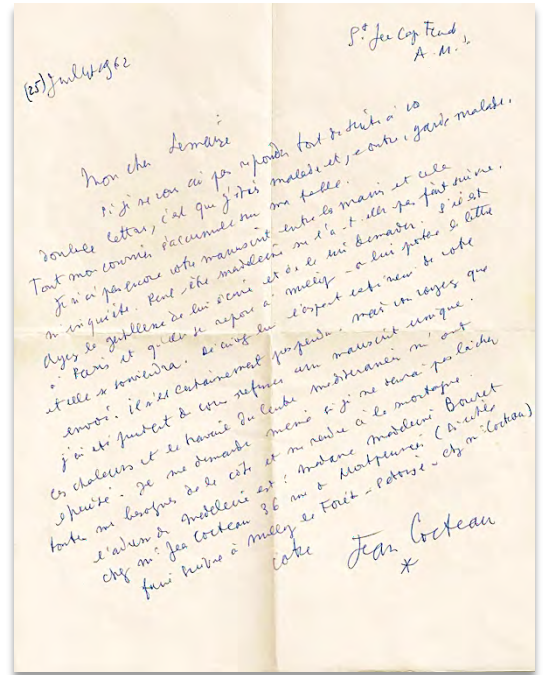 St Jean Cap Ferrat
A. M.
(25) Juillet 1962
Mon cher Lemaire
Si je ne vous ai pas répondu tout de suite à vo
double lettre, c'est que j'étais malade et, en outre, garde malade.
Tout mon courrier s'accumule sur ma table.
Je n'ai pas encore votre manuscrit entre les mains et cela
m'inquiète. Peut-être Madeleine ne l'a-t-elle pas fait suivre.
Ayez la gentillesse de lui écrire et de le lui demander. S'il est
à Paris et qu'elle se repose à Milly - on lui portera la lettre
et elle se souviendra. Décrivez lui l'aspect extérieur de votre
envoi. Il n'est certainement pas perdu. Mais vous voyez que
j'ai été prudent de vous refuser un manuscrit unique.
Ces chaleurs et le travail du Centre méditerranéen m'ont
épuisé. Je me demande même si je ne devrai pas lâcher
toutes mes besognes de la côte et me rendre à la montagne.
L'adresse de Madeleine est : Madame Madeleine Bouret
chez Mr Jean Cocteau 36 rue de Montpensier (
faire suivre à Milly la Forêt - chez Mr Cocteau)
votre Jean Cocteau
*